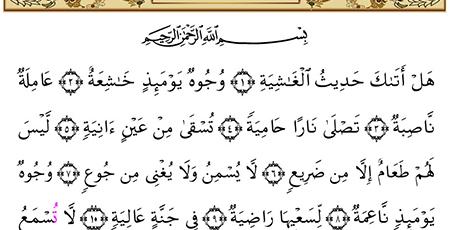 بِسْمِ ٱللَّهِ ٱلرَّحْمَٰنِ ٱلرَّحِيمِ
هَلْ أَتَىٰكَ حَدِيثُ ٱلْغَٰشِيَةِ ﴿١﴾ وُجُوهٌ يَوْمَئِذٍ خَٰشِعَةٌ ﴿٢﴾ عَامِلَةٌ
نَّاصِبَةٌ ﴿٣﴾ تَصْلَىٰ نَارًا حَامِيَةً ﴿٤﴾ تُسْقَىٰ مِنْ عَيْنٍ ءَانِيَةٍ ﴿٥﴾ لَّيْسَ
لَهُمْ طَعَامٌ إِلَّا مِن ضَرِيعٍ ﴿٦﴾ لَّا يُسْمِنُ وَلَا يُغْنِى مِن جُوعٍ ﴿٧﴾ وُجُوهٌ
يَوْمَئِذٍ نَّاعِمَةٌ ﴿٨﴾ لِّسَعْيِهَا رَاضِيَةٌ ﴿٩﴾ فِى جَنَّةٍ عَالِيَةٍ ﴿١٠﴾ لَّا تُسْمَعُ